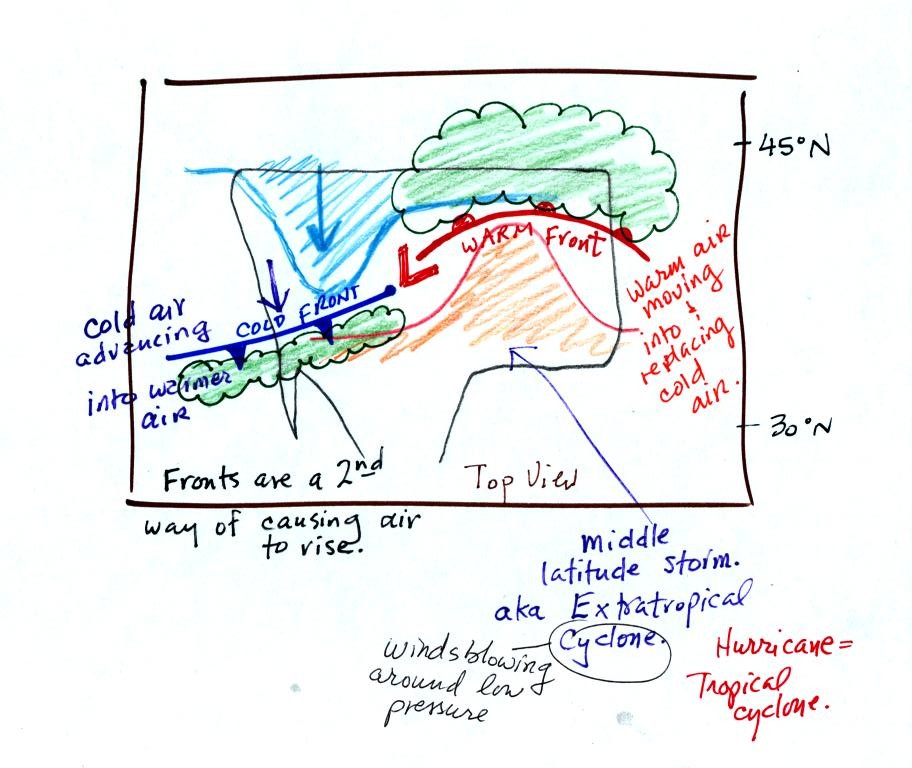 45°N
WARM Front
L
Warm air
moving
+
into
replacing
cold
air.
COLD FRONT
cold air
advancing
into warmer
air
30°N
Fronts are a 2nd
way of causing air
to rise.
Top View
middle
latitude storm.
aka Extratropical
Cyclone.
winds blowing
around low
pressure
Hurricane =
Tropical
cyclone.